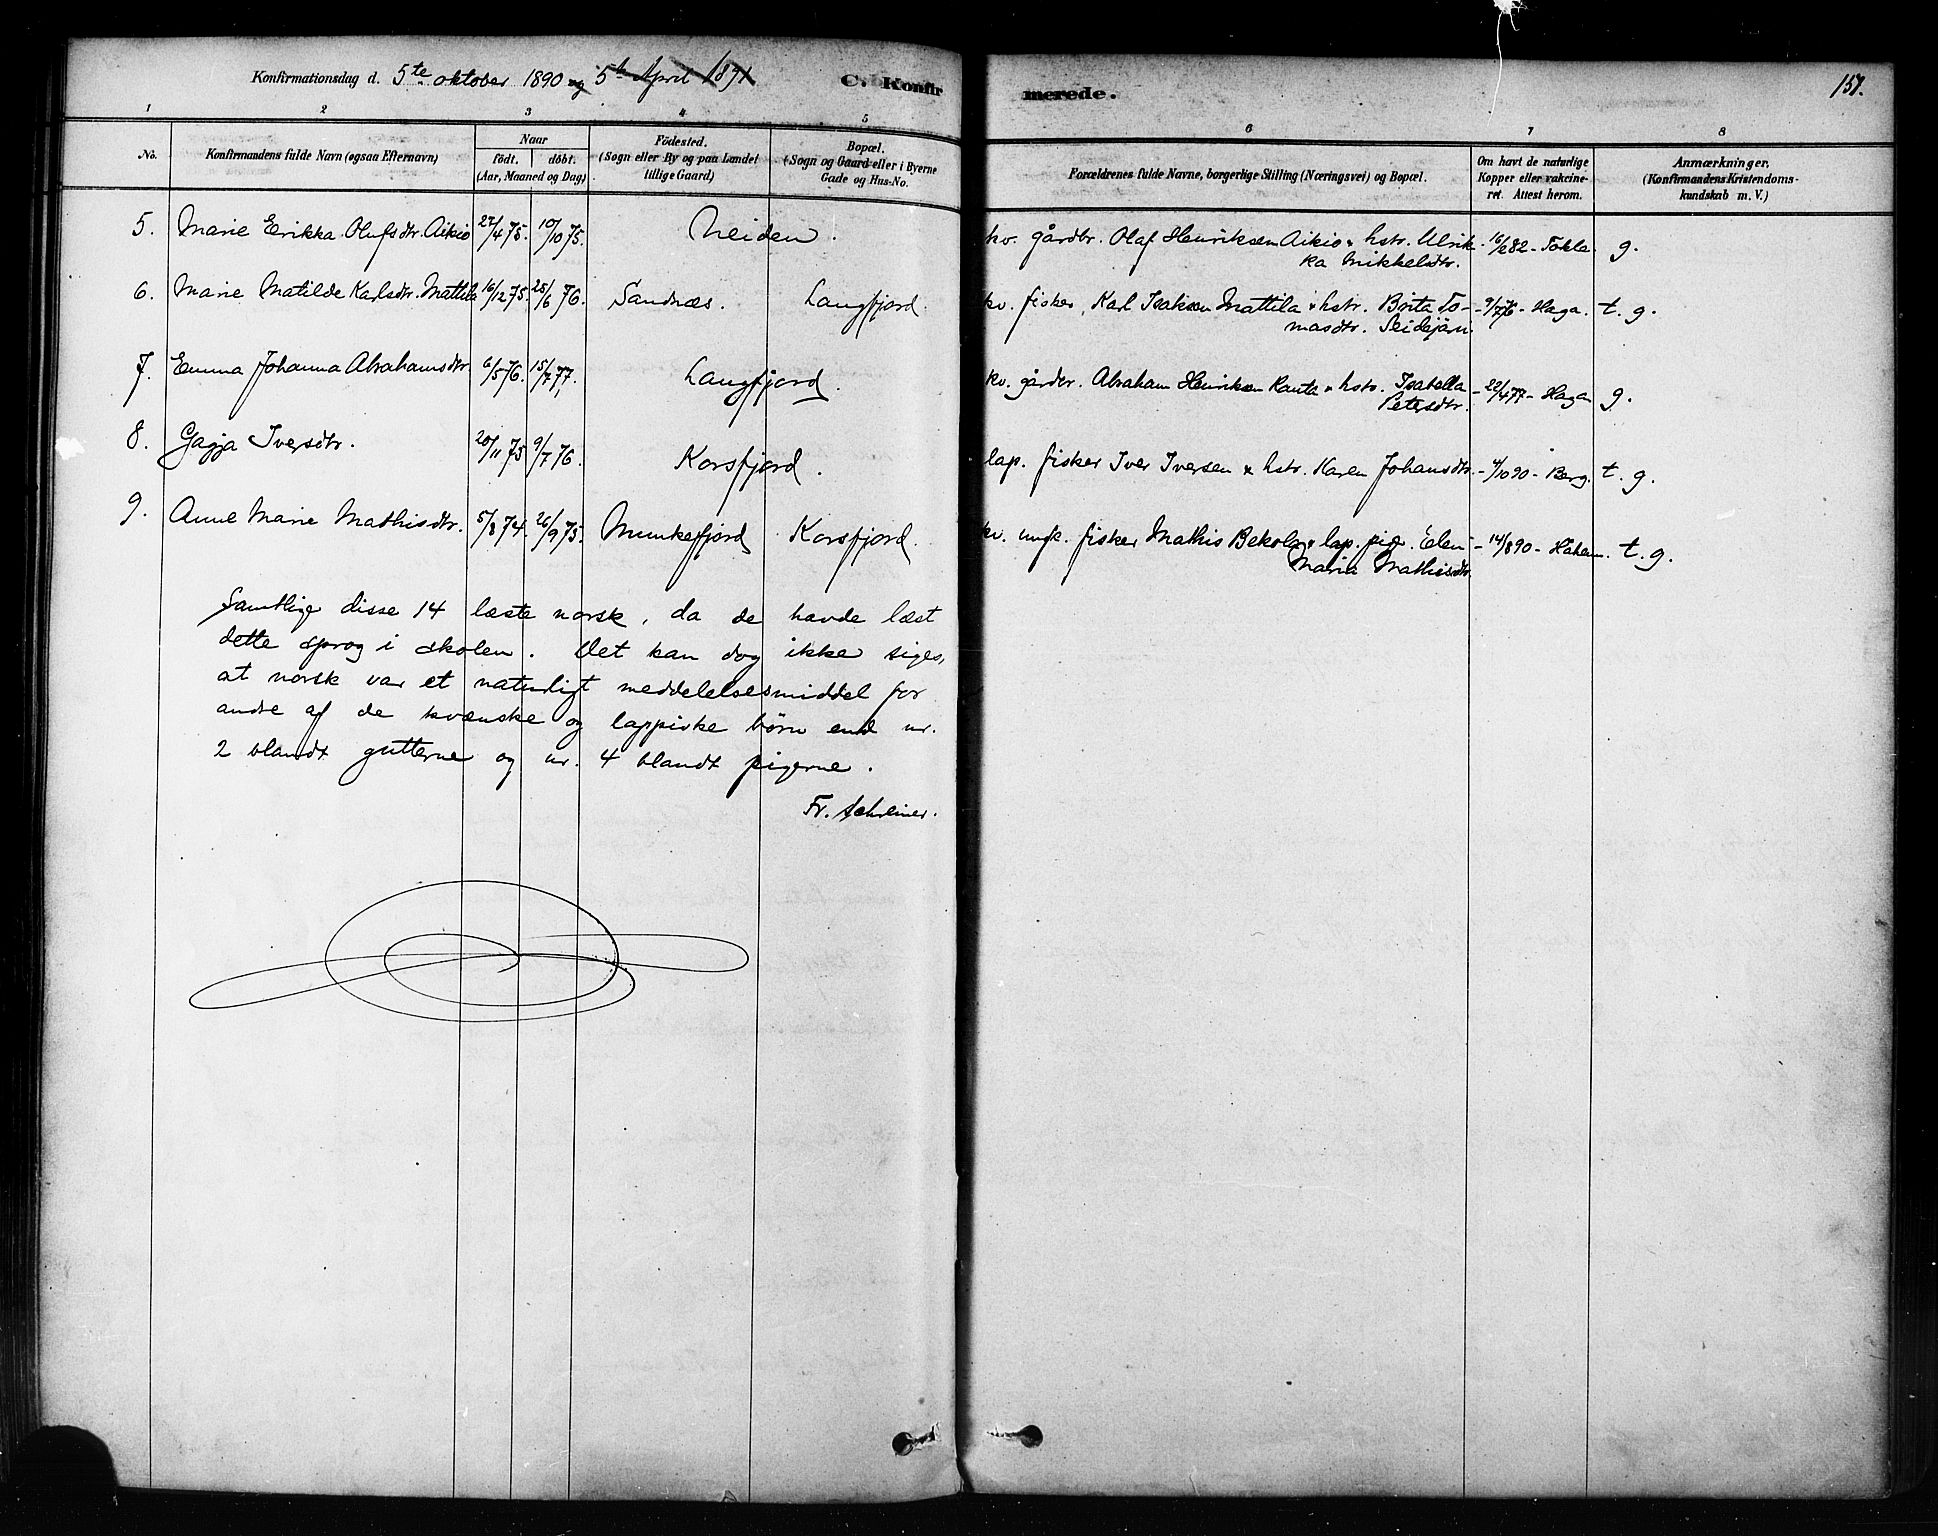 Konfirmationsdag d. 5te oktober 1890 og 5te April 1891
C. Konfir
merede.
151.
1 2 3 4 5 6 7 8
No.
Konfirmandens fulde Navn (ogsaa Efternavn)
Naar
födt. döbt.
(Aar, Maaned og Dag)
Födested.
(Sogn eller By og paa Landet
tillige Gaard)
Bopæl.
(Sogn og Gaard eller i Byerne
Gade og Hus-No.
Forældrenes fulde Navne, borgerlige Stilling (Næringsvei) og Bopæl.
Om havt de naturlige
Kopper eller vakcine-
ret. Attest herom.
Anmærkninger,
(Konfirmandens Kristendoms-
kundskab m. V.)
5. Marie Erikka Olufsdtr. Aikio 27/4 75. 10/10 75. Neiden. kv. gårdbr. Olaf Henriksen Aikio & hstr. Ulrik- 16/2 82 - Tokle. g.
ka Mikkelsdtr.
6. Marie Matilde Karlsdtr. Mattila 16/12 75. 25/6 76. Sandnæs. Langfjord. kv. fisker, Karl Isaksen Mattila & hstr. Brita To- - 9/7 76 - Haga. t. g.
masdtr. Seidejärvi.
7. Emma Johanna Abrahamsdtr. 6/5 76. 15/7 77. Langfjord. kv. gårdbr. Abraham Henriksen Ranta & hstr. Isabella - 22/4 77 - Hagan g.
Petersdtr.
8. Gagja Iversdtr. 20/11 75 9/7 76. Korsfjord. lap. fisker Iver Iversen & hstr. Karen Johansdtr. - 4/10 90 - Berg. t. g.
9. Anne Marie Mathisdtr. 5/8 74. 26/9 75. Munkefjord Korsfjord. kv. ungk. fisker Mathis Bekola & lap. pige. Elen - 14/8 90 - Håkan. t. g.
Maria Mathisdtr.
Samtlige disse 14 læste norsk, da de havde læst
dette sprog i skolen. Det kan dog ikke siges,
at norsk var et naturligt meddelelsesmiddel for
andre af de kvænske og lappiske børn end nr.
2 blandt gutterne og nr. 4 blandt pigerne.
Fr. Schreiner.